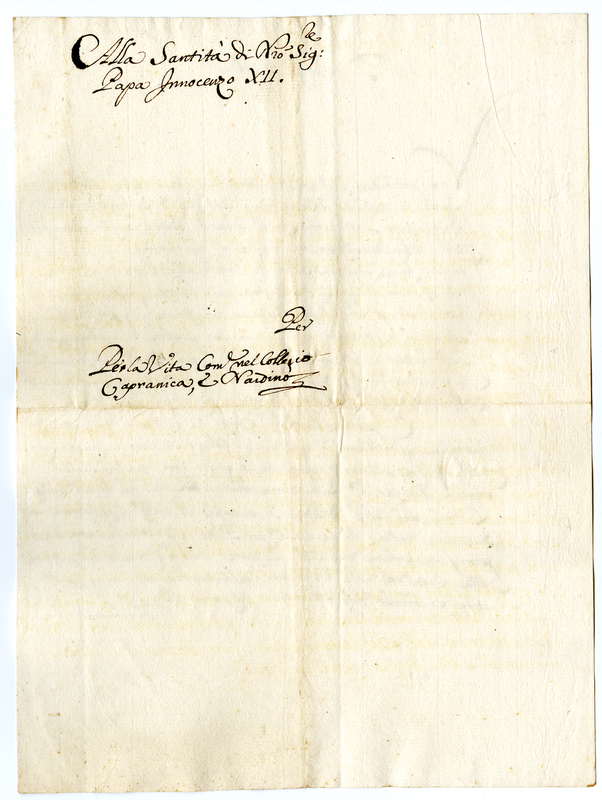 Alla Santità di Nro Sig:re
Papa Innocenzo XII.
Per
Per la Vita Com.e nel Collegio
Capranica, e Nardino